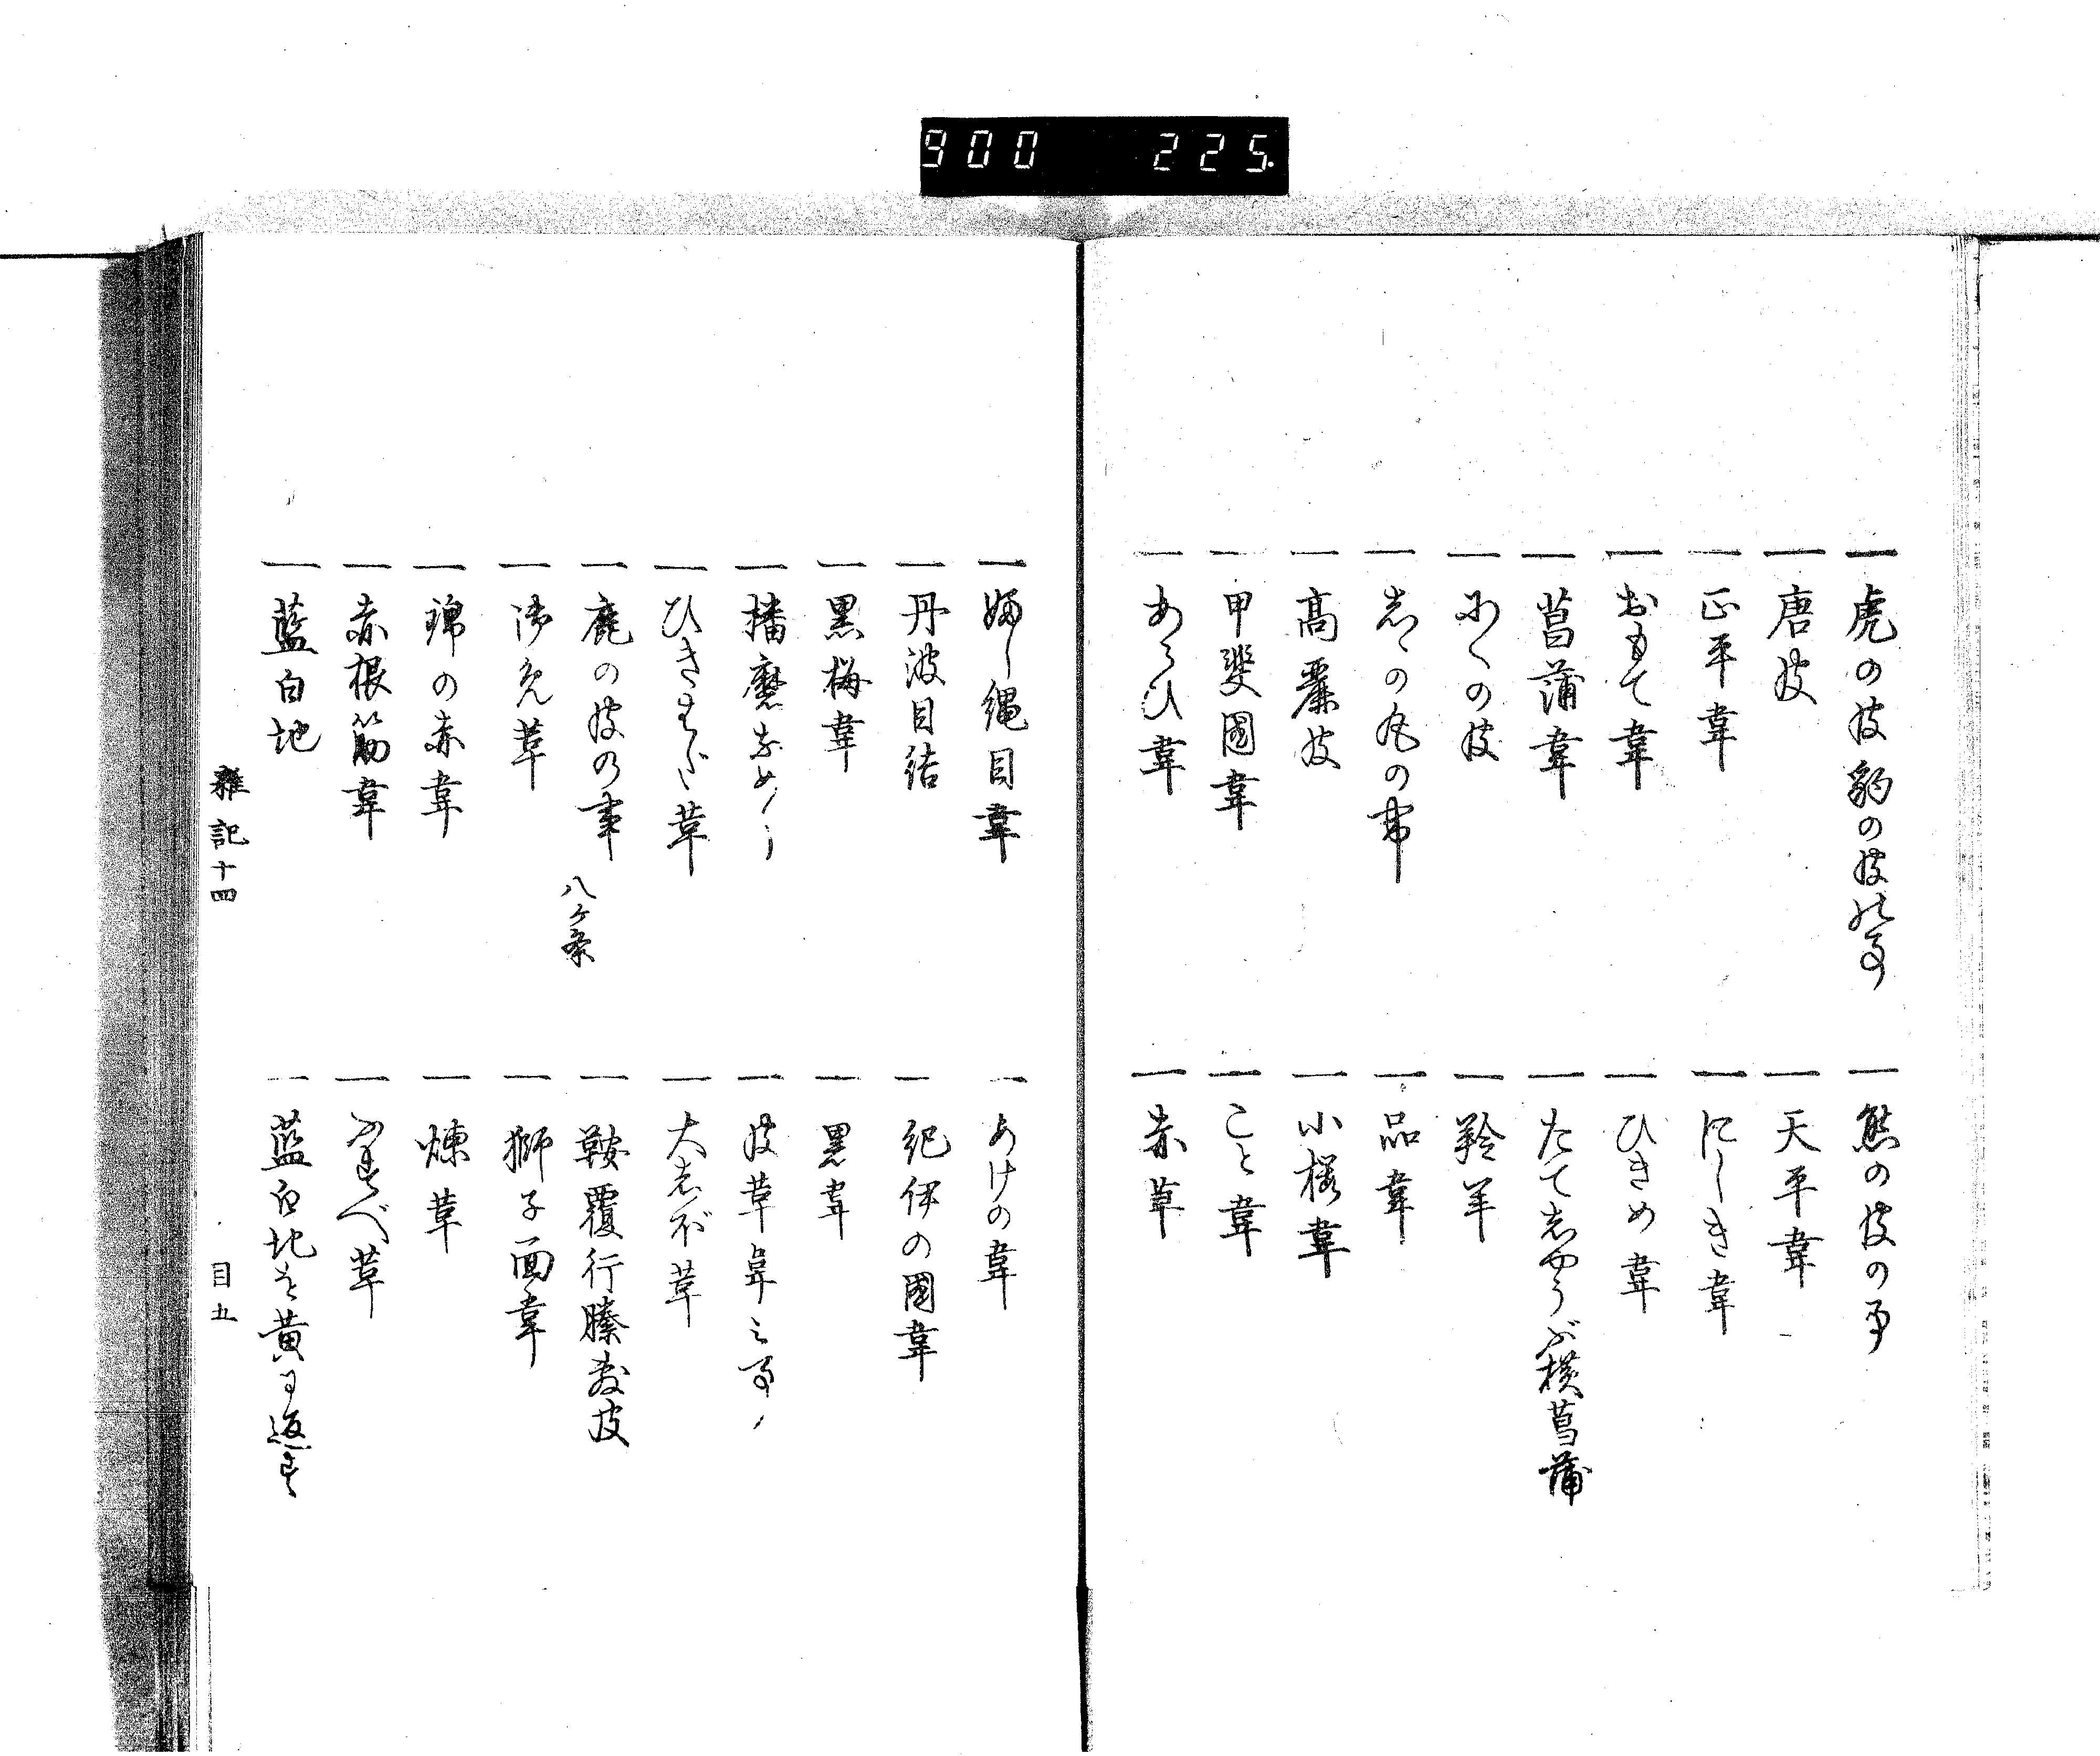 900 225
一 虎の皮豹の皮の事
一 熊の皮の事
一 唐皮
一 天平韋
一 正平韋
一 にしき韋
一 おもて韋
一 ひきめ韋
一 菖蒲韋
一 たてしやうぶ横菖蒲
一 にくの皮
一 羚羊
一 しゝの丸の韋
一 品韋
一 高麗皮
一 小桜韋
一 甲斐国韋
一 こと韋
一 あらひ韋
一 赤革
一 ふし縄目韋
一 あけの韋
一 丹波目結
一 紀伊の国韋
一 黒梅韋
一 黒韋
一 播磨なめし
一 皮革韋之事
一 ひきはだ革
一 大しぼ革
一 鹿の皮の事 八ヶ条
一 鞍覆行縢敷皮
一 御免革
一 獅子面韋
一 錦の赤韋
一 煉革
一 赤根筋韋
一 ふすべ革
一 藍白地
一 藍白地を黄に返す
雑記十四 目五